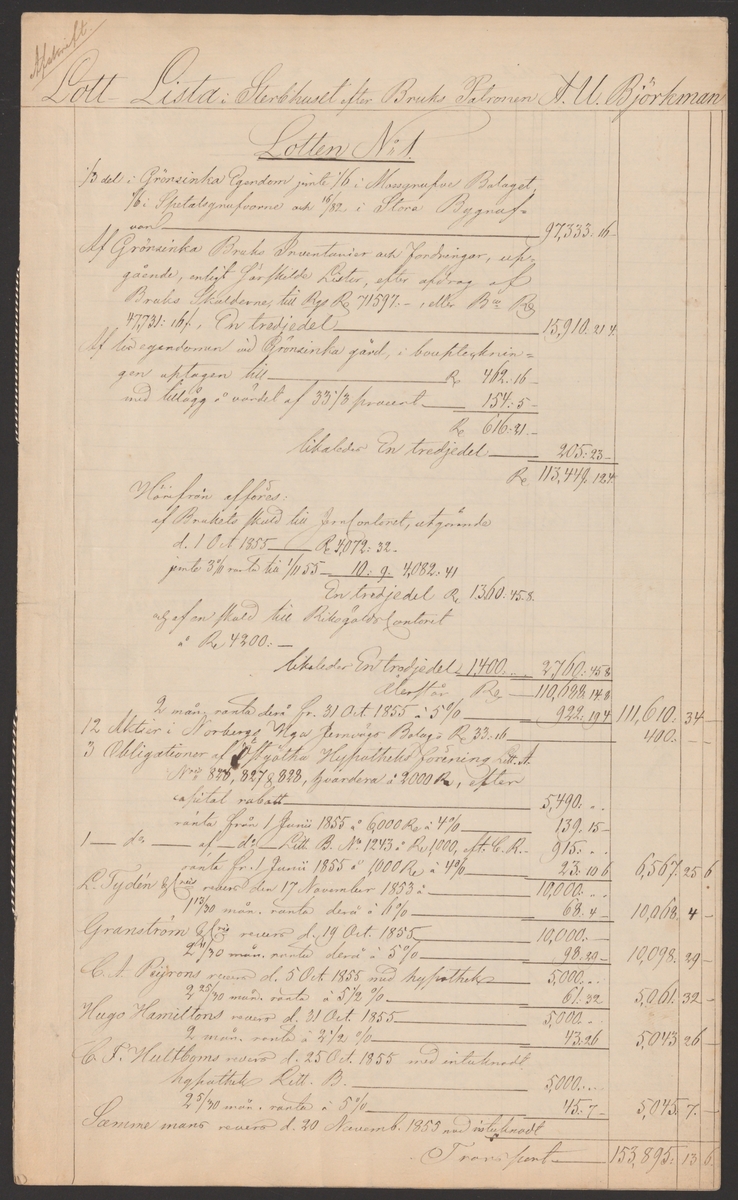 Afskrift.
Lott Lista i Sterbhuset efter Bruks Patronen A. U. Björkman
Lotten No 1.
1/3 del i Grönsinka Egendom jemte 1/6 i Mossgrufve Bolaget,
1/6 i Spetalsgrufvorne och 16/82 i Stora Bygruf-
van 97,333. 16 -
Af Grönsinka Bruks Inventarier och Fordringar, up-
gående, enligt särskilde Lister, efter afdrag af
Bruks Skulderne, till Rgs Rd 71597. -, eller Bco Rd
47,731: 16 /, En tredjedel 15,910. 21 4
Af lösegendomen vid Grönsinka gård, i bouptecknin-
gen uptagen till Rd 462. 16 -
med tillägg å värdet af 33 1/3 procent 154: 5 -
Rd 616: 21. -
likaledes En tredjedel 205: 23 -
Rd 113,449. 12 4
Härifrån afföres:
af Brukets skuld till Jern Contoret, utgörande
d. 1 Oct 1855 Rd 4,072: 32 -
jemte 3 % ränta till 1/11 55 10: 9. 4,082: 41
En tredjedel Rd 1360. 45. 8
och af en skuld till Riksgälds Contoret
å Rd 4200: -
likaledes En tredjedel 1,400. .. 2,760: 45 8
Återstår Rd 110,688. 14 8
2 mån. ränta derå fr. 31 Oct 1855 à 5 % 922: 19 4 111,610: 34 -
12 Aktier i Norbergs Nya Jernvägs Bolag à Rd 33: 16 400: - -
3 Obligationer af Östgötha Hypotheks förening Litt. A.
Nris 826, 827 & 828, hvardera à 2000 Rd, efter
capital rabatt 5,490. ..
ränta från 1 Junii 1855 å 6,000 Rd à 4 % 139. 15 -
1 do af do Litt B. No 1243 à Rd 1,000, eft. C. R. 915: -
ränta fr. 1 Junii 1855 å 1,000 Rd à 4 % 23: 10 6 6,567. 25 6
L. Tydén & Cnis revers den 17 November 1853 à 10,000. ..
1 11/30 mån. ränta derå à 6 % 68. 4 - 10,068. 4 -
Granström & Cnis revers d. 19 Oct. 1855 10,000. -
2 11/30 mån. ränta derå à 5 % 98. 29 - 10,098. 29 -
C. A. Peyrons revers d. 5 Oct. 1855 med hypothek 5,000. ..
2 25/30 mån. ränta à 5 1/2 % 61: 32 5,061: 32 -
Hugo Hamiltons revers d. 21 Oct. 1855 5,000. ..
2 mån. ränta à 2 1/2 % 43: 26 5,043 26 -
C. P. Hultboms revers d. 25 Oct. 1855 med intecknadt
hypothek Litt. B. 5,000. ..
2 5/30 mån. ränta à 5 % 45. 7 - 5,045. 7. -
Samme mans revers d. 20 Novemb. 1855 med intecknadt
Transport 153,895. 13 6.